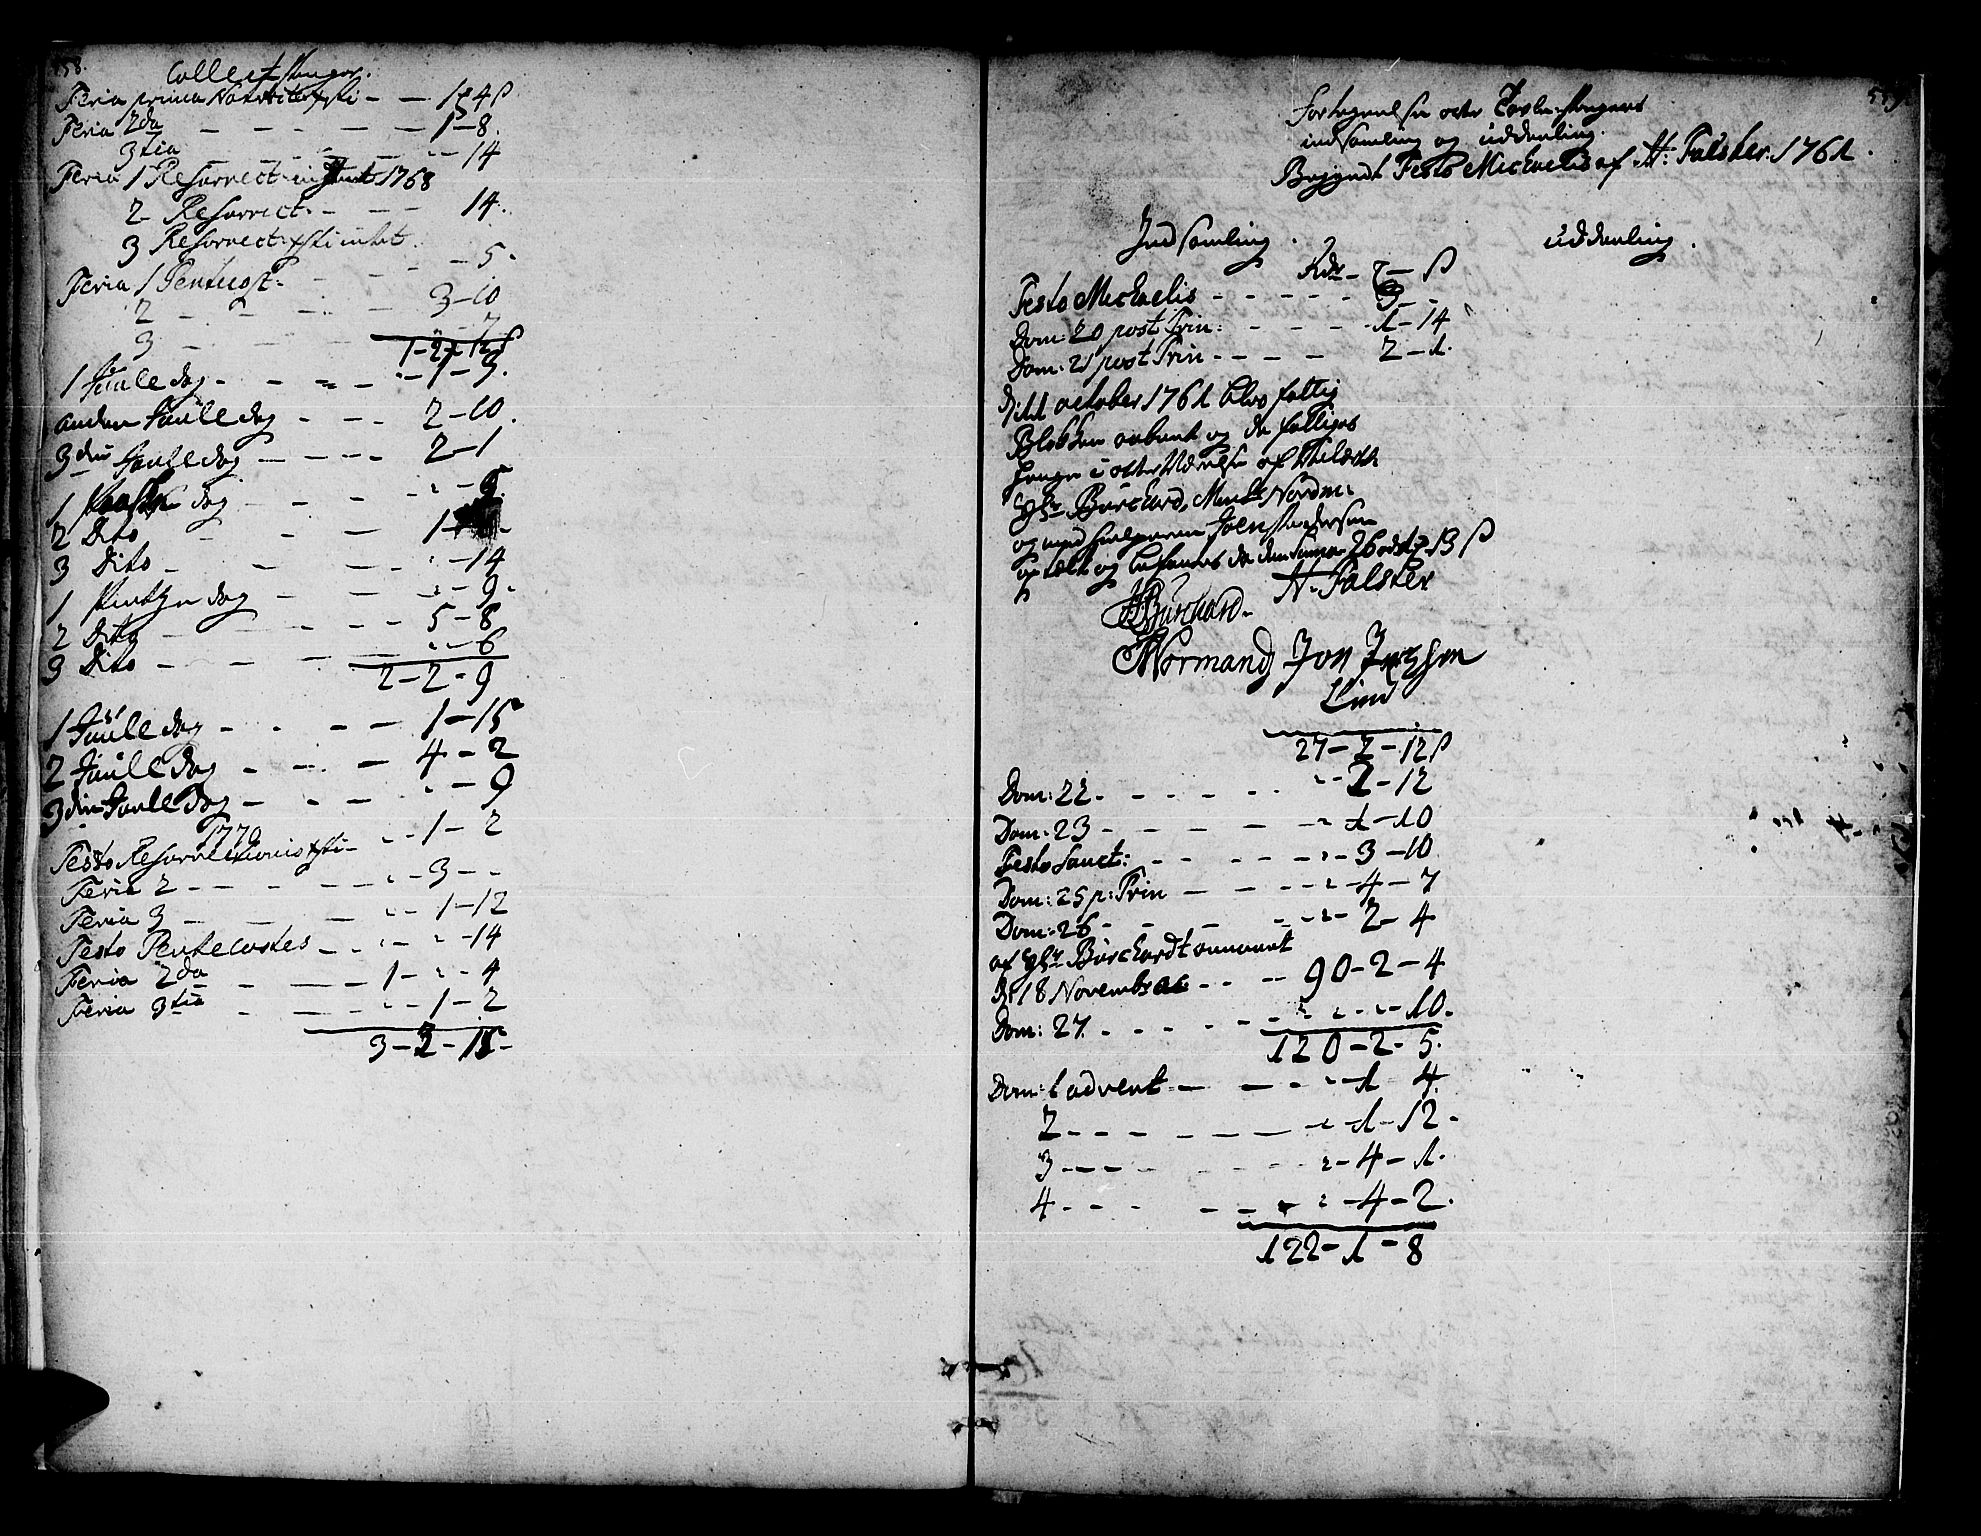 558.
Collect penger.
Feria prima Nativitat: Xsti - - 1 - 4 ß
Feria 2da - - - - - 1 - 8.
3tia - - - - - 14
Feria 1 Resurrect: 1768
2 - Resurrect: - - - 14.
3 Resurrect: Xsti intet.
Feria 1 Pentecost: - - - - 5.
2 - - - - 3 - 10
3 - - - 7
1 - 2 - 12 ß
1 Juule dag - - - - 1 - 3.
anden Juule dag - - - 2 - 10.
3die Juule dag - - - - 2 - 1
1 Paaske dag - - - 5.
2 Dito - - - 1 -
3 Dito - - - 14
1 Pintze dag - - - 9.
2 Dito - - - - 5 - 8
3 Dito - - - - 6
2 - 2 - 9
1 Juule dag - - - - 1 - 15
2 Juule dag - - - 4 - 2
3die Juule dag - - - 9
1770
Festo Resurrectionis Xsti - - - 1 - 2
Feria 2 - - - - - 3 - -
Feria 3 - - - - 1 - 12
Festo Pentecostes - - - 14
Feria 2da - - - 1 - - 4
Feria 3tia - - - - 1 - 2
3 - 2 - 15 -
559.
Fortegnelse over Tavle-Pengers
indsamling og uddeeling.
Begyndt Festo Michaelis af H: Falster. 1761.
Indsamling. uddeeling.
Rdr - - ß
Festo Michaelis - - - - - 3 - -
Dom: 20 post Trin: - - - - 1 - 14
Dom: 21 post Trin - - - - 2 - 1.
d: 11 october 1761 blev fattig
Blokken aabnet og de fattiges
penge i overværelse af
Hr Burchard, Normand
og
optalt og befandtes da den Summa 26 - 13 ß
H. Falster
Burchard.
Normand Jon
Lind
27 - 2 - 12 ß
Dom: 22. - - - - - 2 - 12
Dom: 23 - - - - - 1 - 10
Festo Sanct: - - - - - 3 - 10
Dom: 25 p: Trin - - - - 4 - 7
Dom: 26 - - - - - 2 - 4
af Hr Burchardt annammet
d: 18 Novembr - - - 90 - 2 - 4
Dom: 27. - - - - - - - 10.
120 - 2 - 5.
Dom: 1 advent - - - - 1 4.
2 - - - - - - 1 - 12 -
3 - - - - - - 4 - 1.
4 - - - - - - 4 - 2.
122 - 1 - 8